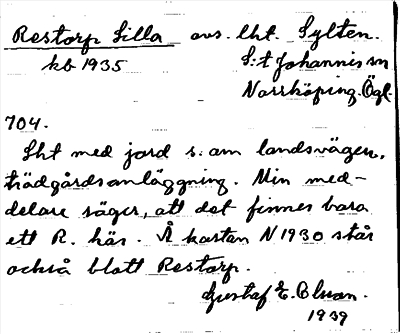 Restorp Lilla avs. lht. Sylten.
kb 1935 S:t Johannis sn
Norrköping. Ögl.
704.
Lht med jord s. om landsvägen,
trädgårdsanläggning. Min med-
delare säger, att det finnes bara
ett R. här. Å kartan N 1930 står
också blott Restorp.
Gustaf E.
1939